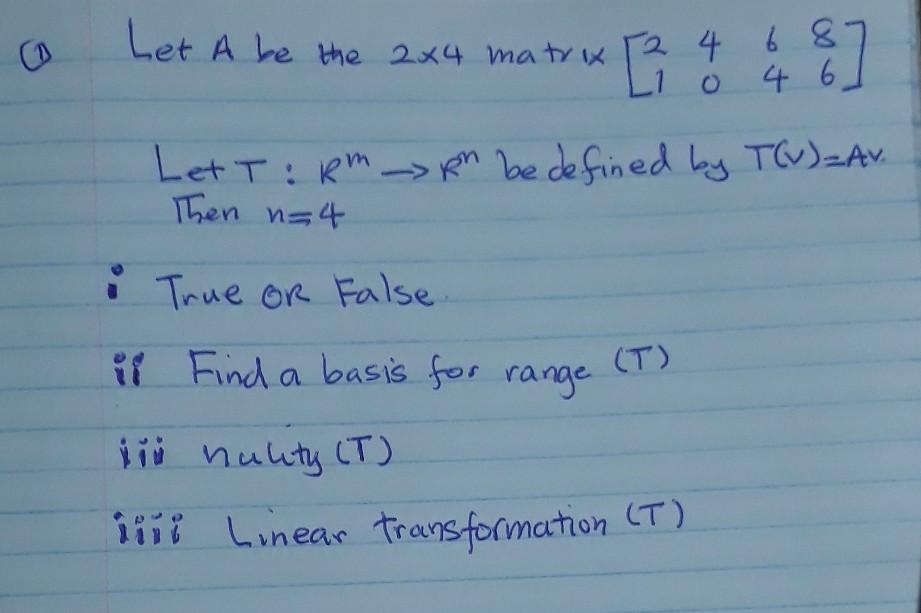 ① Let A be the 2x4 matrix [2 4 6 8
1 0 4 6]
Let T : Rᵐ → Rⁿ be defined by T(v)=Av.
Then n=4
i True OR False.
ii Find a basis for range (T)
iii nulity (T)
iiii Linear transformation (T)